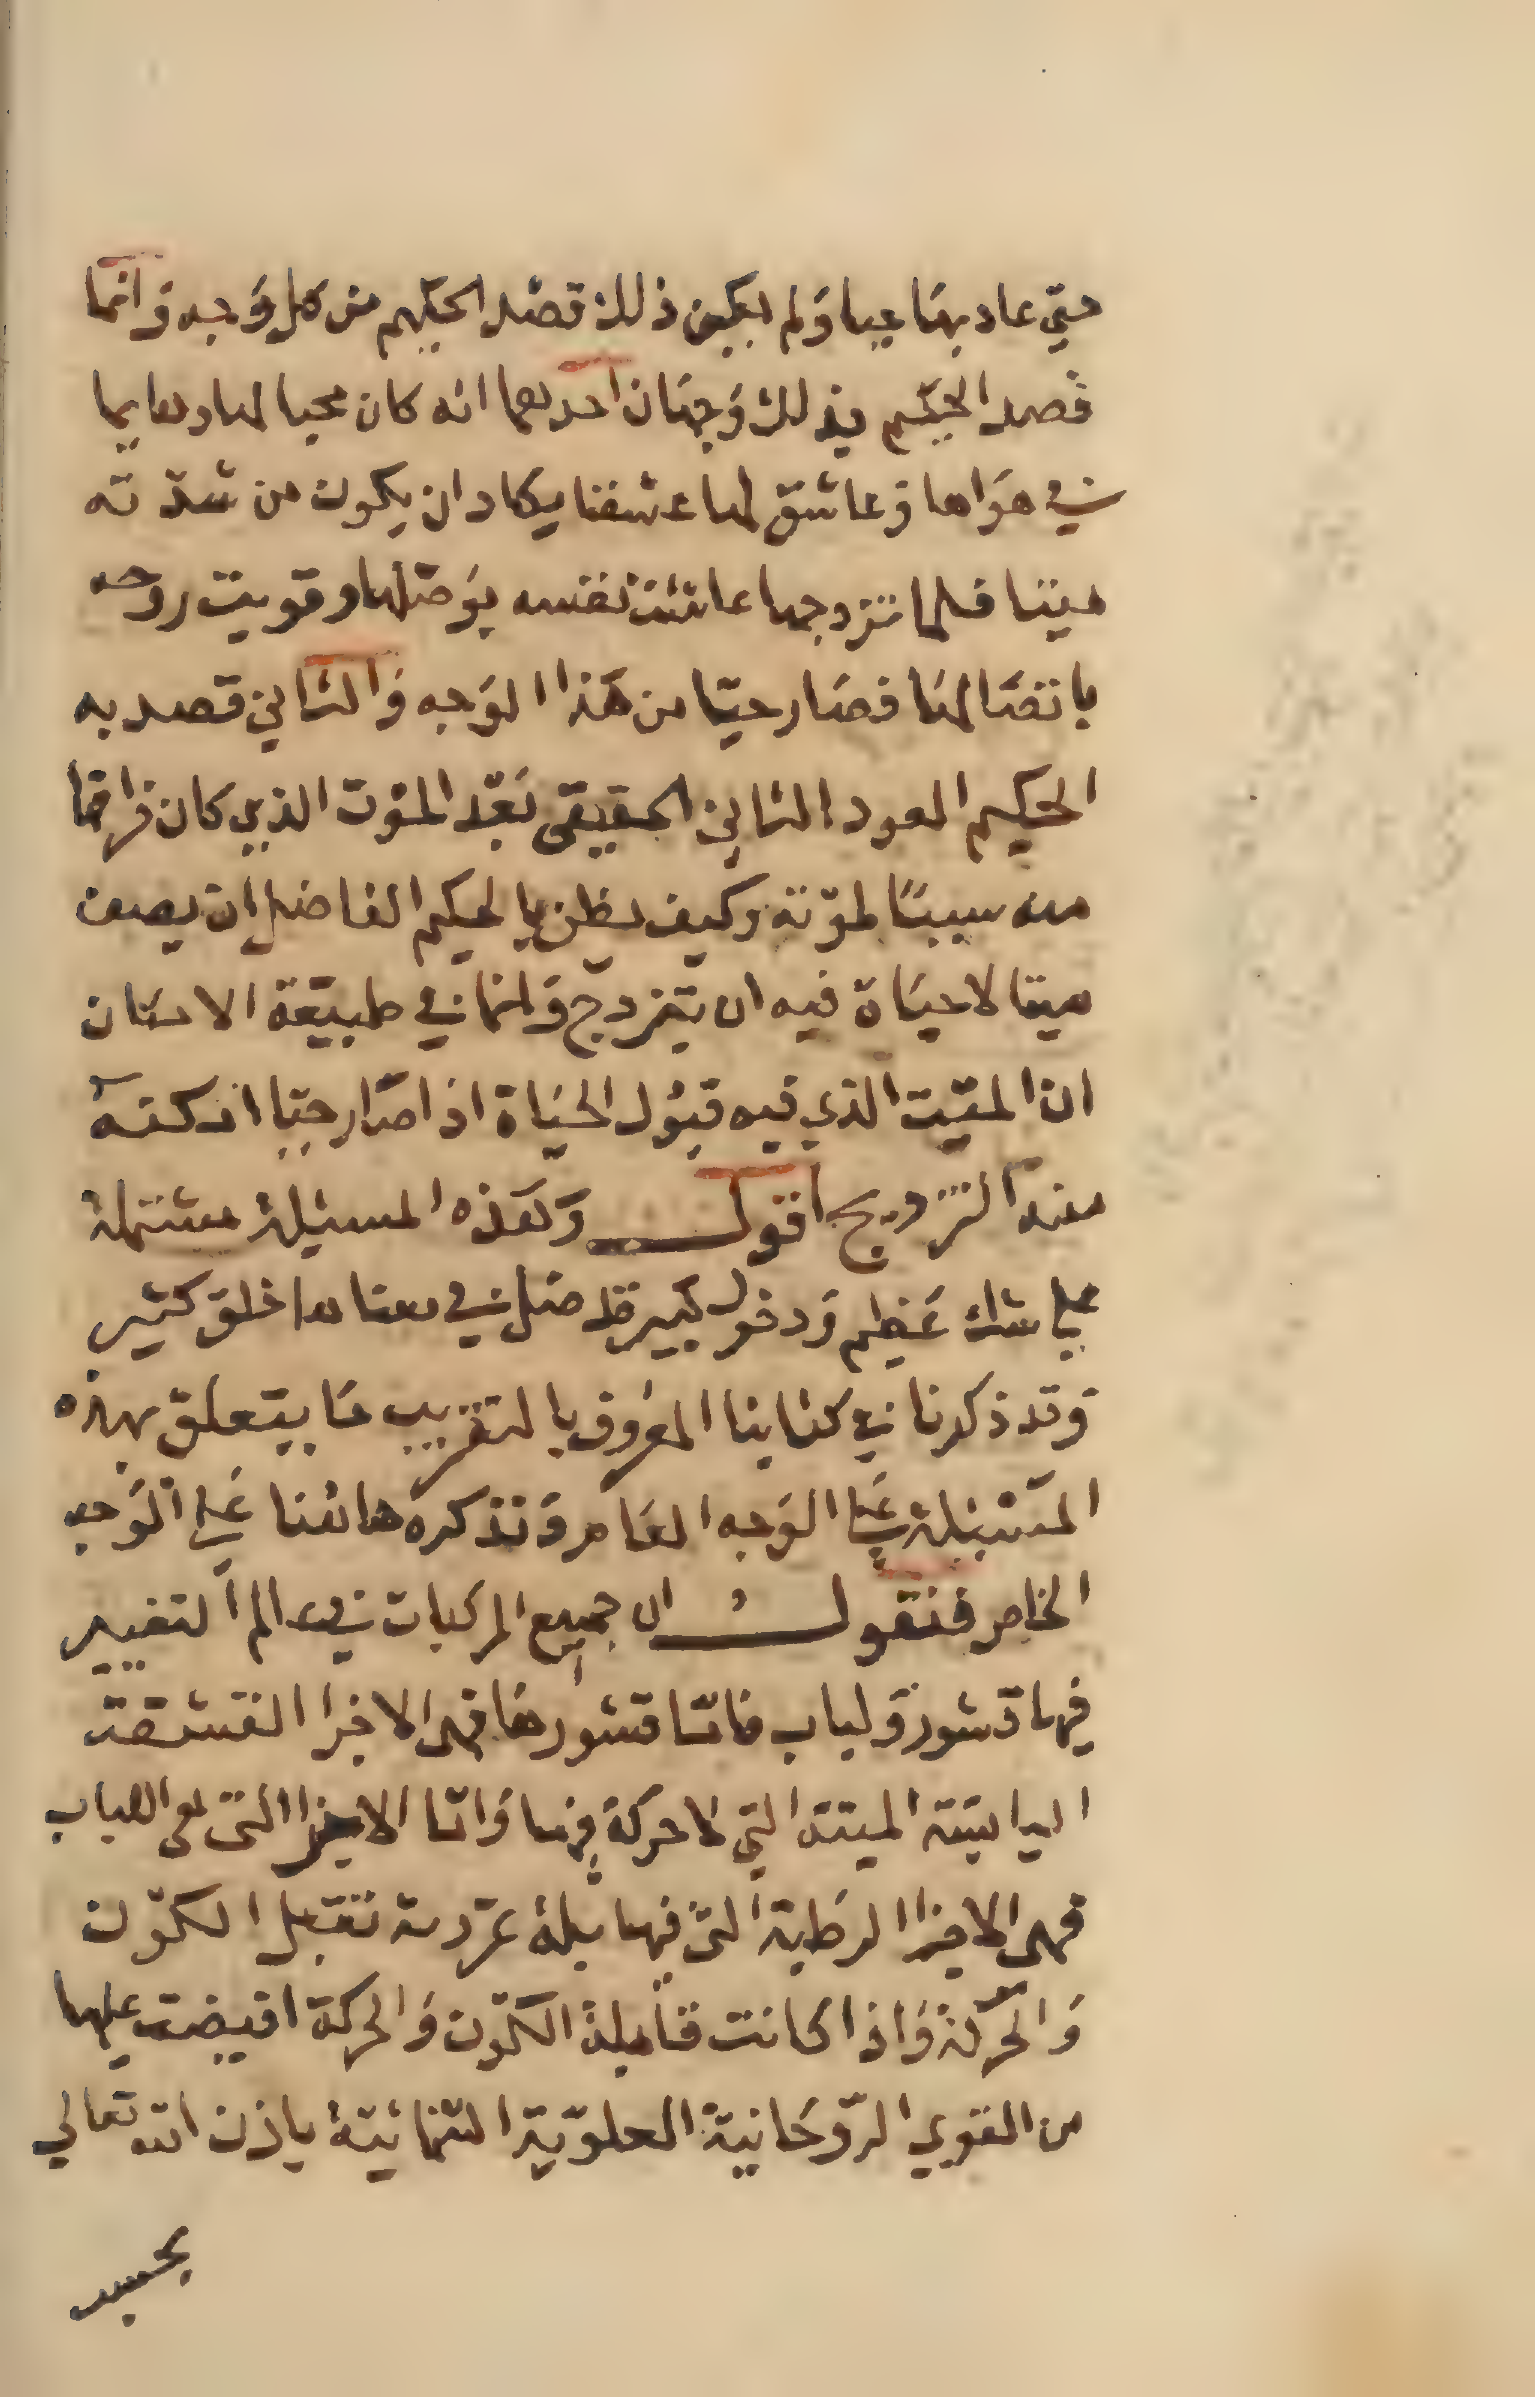 حتي عاد بها حيا ولم يكن ذلك قصد الحكيم من كل وجه وانما
قصد الحكيم في ذلك وجهان احدهما انه كان محبا لها وهايما
في هواها وعاشق لها عشقا يكاد ان يكون من شدته
ميتا فلما تزوجها عاشت نفسه بوصلها وقويت روحه
باتصالها فصار حيا من هذا الوجه والثاني قصد به
الحكيم العود الثاني الحقيقي بعد الموت الذي كان فراقها
منه سببا لموته وكيف يظن بالحكيم الفاضل ان يصف
ميتا لا حياة فيه ان يتزوج وانما في طبيعة الانسان
ان الميت الذي فيه قبول الحياة اذا صار حيا ادركته
منه التزويج اقول وهذه المسيلة مشتملة
علي شك عظيم ودخول كبير قد ضل في معناها خلق كثير
وقد ذكرنا في كتابنا المعروف بالتقريب ما يتعلق بهذه
المسيلة علي الوجه العام ونذكره هاهنا علي الوجه
الخاص فنقول ان جميع المركبات في عالم التغيير
فيها قشور ولباب فاما قشورها فهي الاجزا القشفة
اليابسة الميتة التي لا حركة فيها واما الاجزا التي هي اللباب
فهي الاجزا الرطبة التي فيها بلة تقبل الكون
والحركة واذا كانت قابلة الكون والحركة افيضت عليها
من القوي الروحانية العلوية السمائية باذن الله تعالي
بحسب